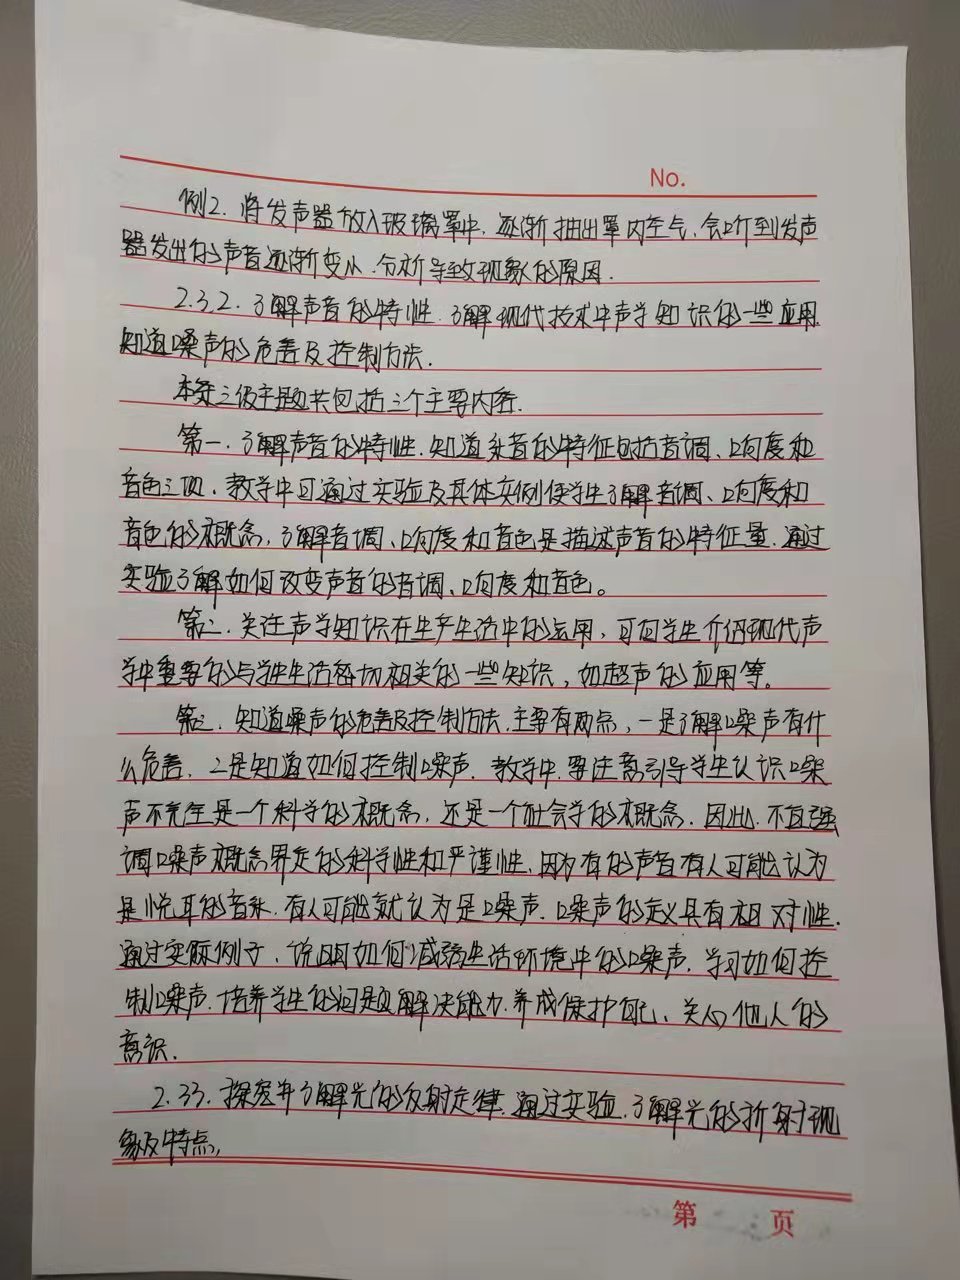 No.
例2.将发声器放入玻璃罩中,逐渐抽出罩内空气,会听到发声
器发出的声音逐渐变小.分析导致现象的原因.
2.3.2.了解声音的特性.了解现代技术中声学知识的一些应用.
知道噪声的危害及控制方法.
本条三级主题共包括三个主要内容.
第一.了解声音的特性.知道乐音的特征包括音调、响度和
音色三项.教学中可通过实验及具体实例使学生了解音调、响度和
音色的概念,了解音调、响度和音色是描述声音的特征量.通过
实验了解如何改变声音的音调、响度和音色。
第二.关注声学知识在生产生活中的运用,可向学生介绍现代声
学中重要的与学生生活密切相关的一些知识,如超声的应用等。
第三.知道噪声的危害及控制方法.主要有两点,一是了解噪声有什
么危害.二是知道如何控制噪声.教学中.要注意引导学生认识噪
声不完全是一个科学的概念,还是一个社会学的概念.因此.不宜强
调噪声概念界定的科学性和严谨性.因为有的声音有人可能认为
是悦耳的音乐.有人可能就认为是噪声.噪声的定义具有相对性.
通过实际例子,说明如何减弱生活环境中的噪声.学习如何控
制噪声.培养学生的问题解决能力.养成保护自己、关心他人的
意识.
2.33.探究并了解光的反射定律.通过实验.了解光的折射现
象及特点,
第 页